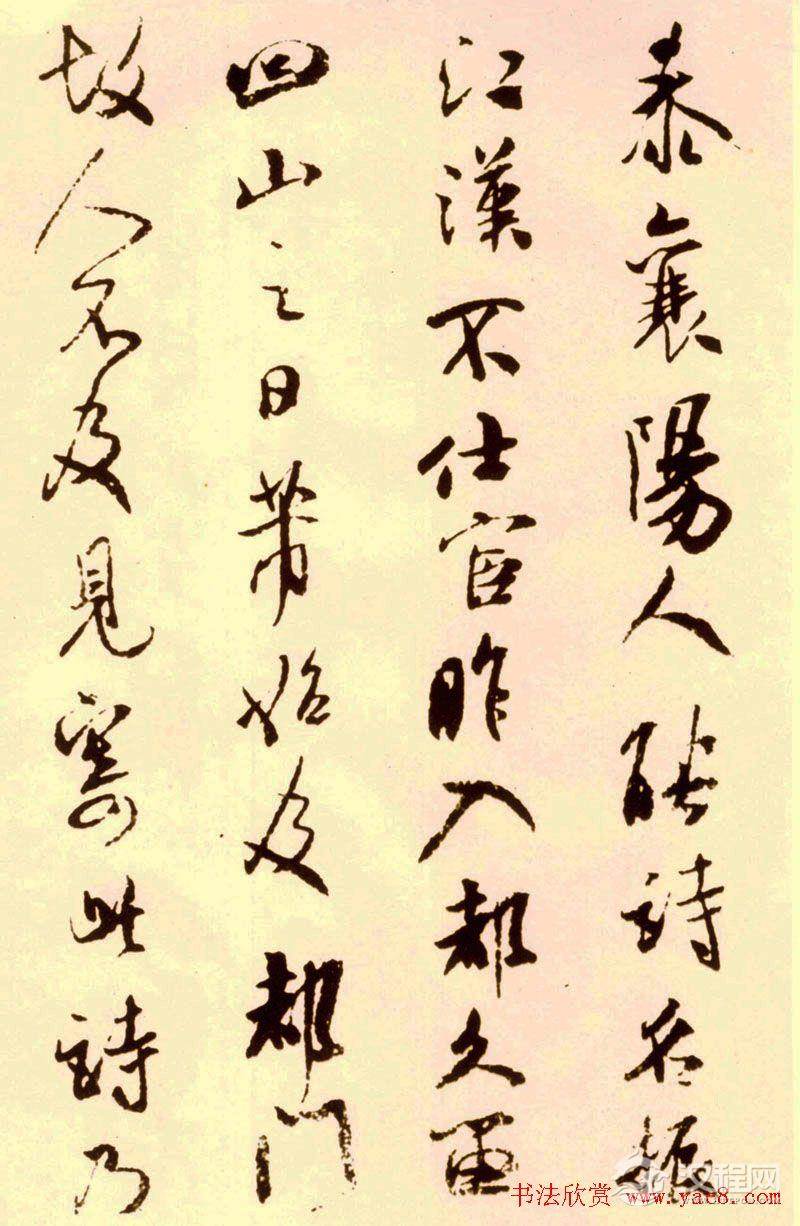 泰襄陽人能詩名振
江漢不仕宦昨入都久留
回山之日芾始及都門
故人不及見寄此詩乃
汉程网
书法欣赏 www.yac8.com